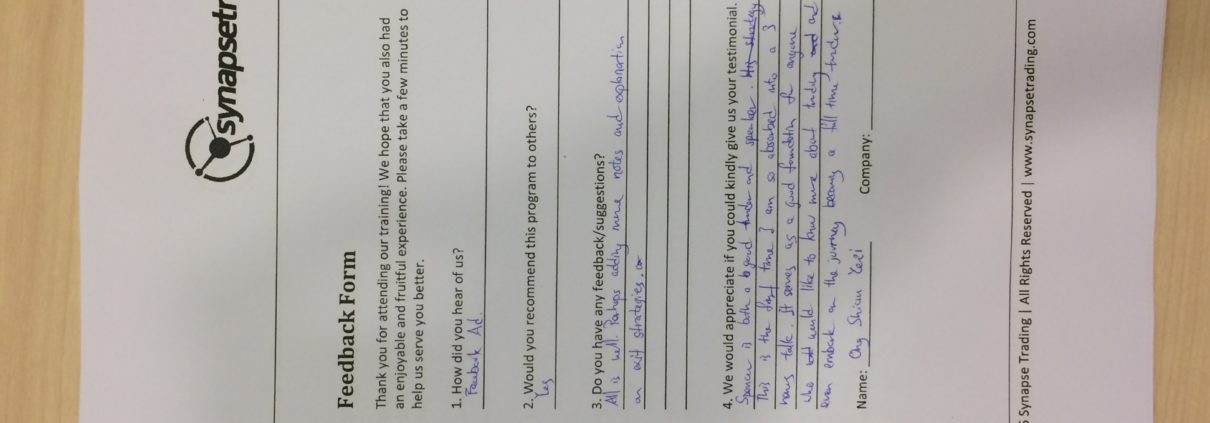 synapsetr
Feedback Form
Thank you for attending our training! We hope that you also had
an enjoyable and fruitful experience. Please take a few minutes to
help us serve you better.
1. How did you hear of us?
Facebook Ad
2. Would you recommend this program to others?
Yes
3. Do you have any feedback/suggestions?
All is well. Perhaps adding more notes and explanation
on exit strategies.
4. We would appreciate if you could kindly give us your testimonial.
Spencer is both a good trader and speaker. His strategy
This is the first time I am so absorbed into a 3
hours talk. It serves as a good foundation for anyone
who would like to know more about trading and and
even embark on the journey becoming a full time trader.
Name: Ong Shian Company:
Synapse Trading | All Rights Reserved | www.synapsetrading.com